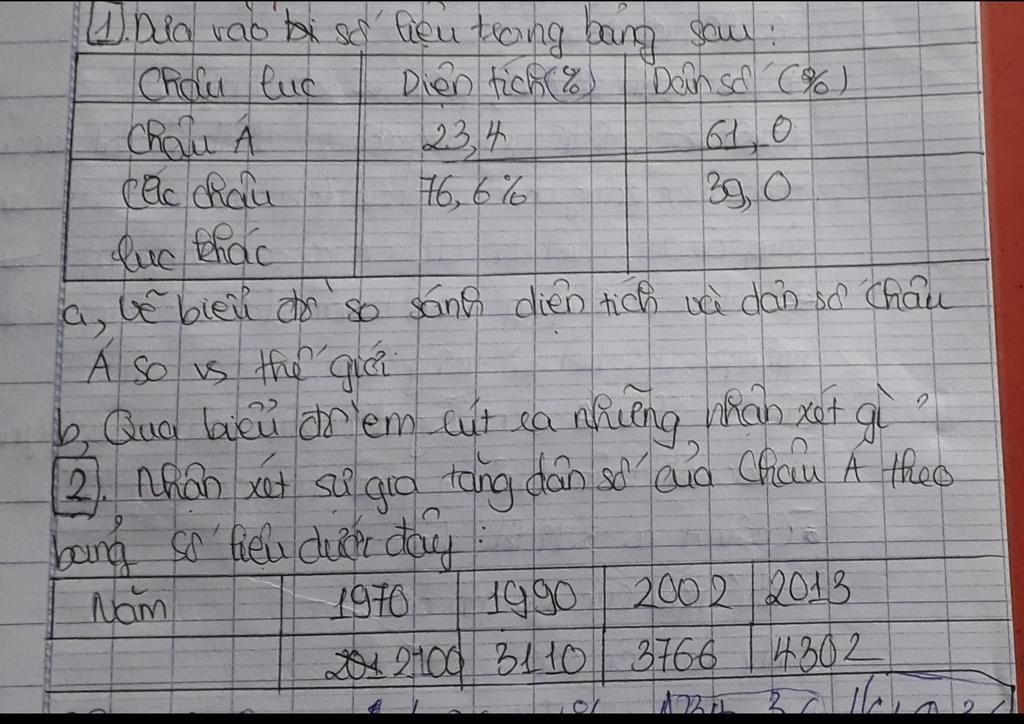 1. Dựa vào số liệu trong bảng sau:
Châu lục Diện tích (%) Dân số (%)
Châu Á 23,4 61,0
Các châu 76,6% 39,0
lục khác
a, Vẽ biểu đồ so sánh diện tích và dân số Châu
Á so vs thế giới
b, Qua biểu đồ em rút ra những nhận xét gì?
2. Nhận xét sự gia tăng dân số của Châu Á theo
bảng số liệu dưới đây:
Năm 1970 1990 2002 2013
2100 3110 3766 4302